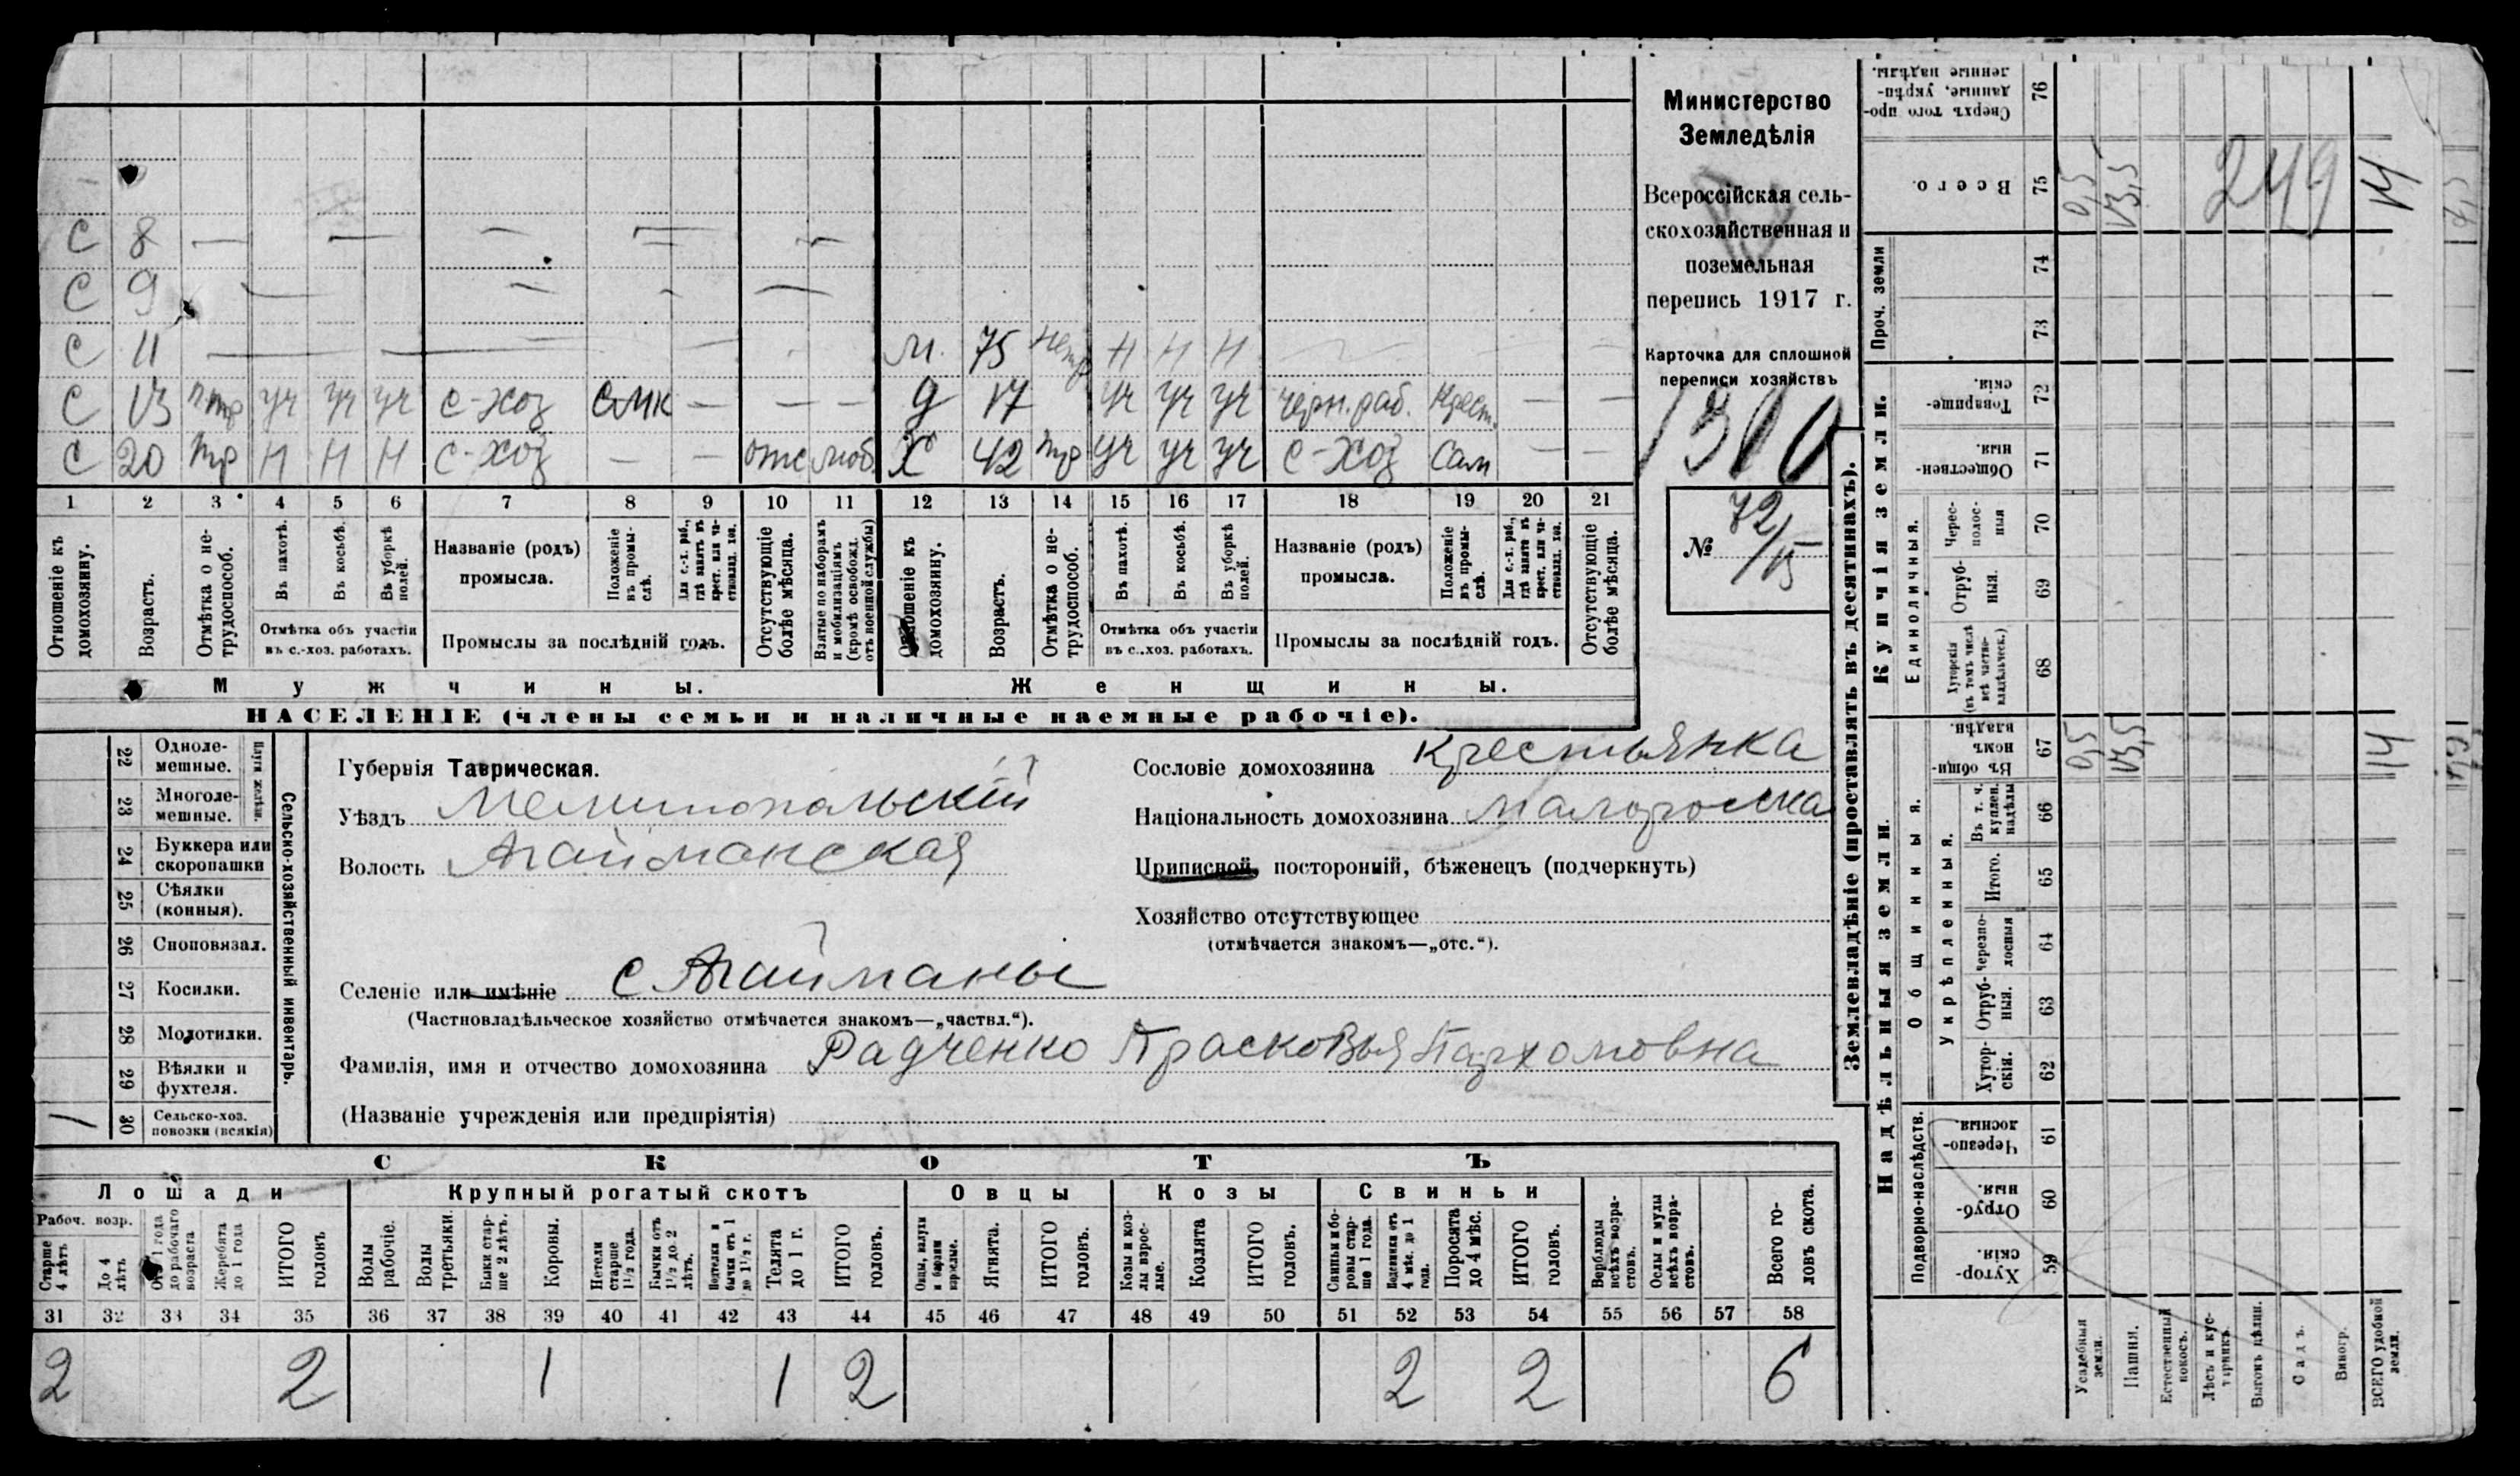 С 8 — — — — —
С 9 — — — —
С 11 — — — —
С 13 птр уч уч уч с-хоз смк — — —
С 20 тр Н Н Н с-хоз — — отс моб.
м. 75 нетр Н Н Н
д 17 уч уч уч черн. раб. Крест. — —
Х 42 тр уч уч уч с-хоз Сам — —
1 2 3 4 5 6 7 8 9 10 11 12 13 14 15 16 17 18 19 20 21
Отношеніе къ домохозяину.
Возрастъ.
Отмѣтка о не-трудоспособ.
Въ пахотѣ.
Въ косьбѣ.
Въ уборкѣ полей.
Отмѣтка объ участіи
въ с.-хоз. работахъ.
Названіе (родъ)
промысла.
Положеніе въ промы-слѣ.
Для с.-х. раб., гдѣ занятъ въ крест. или ча-стновлад. хоз.
Промыслы за послѣдній годъ.
Отсутствующіе болѣе мѣсяца.
Взятые по наборамъ и мобилизаціямъ (кромѣ освобожд. отъ военной службы)
Отношеніе къ домохозяину.
Возрастъ.
Отмѣтка о не-трудоспособ.
Въ пахотѣ.
Въ косьбѣ.
Въ уборкѣ полей.
Отмѣтка объ участіи
въ с.-хоз. работахъ.
Названіе (родъ)
промысла.
Положеніе въ промы-слѣ.
Для с.-х. раб., гдѣ занято въ крест. или ча-стновлад. хоз.
Промыслы за послѣдній годъ.
Отсутствующіе болѣе мѣсяца.
Мужчины.
Женщины.
НАСЕЛЕНІЕ (члены семьи и наличные наемные рабочіе).
Министерство
Земледѣлія
Всероссійская сель-
скохозяйственная и
поземельная
перепись 1917 г.
Карточка для сплошной
переписи хозяйствъ
1300
№ 72/15
22 Одноле-мешные.
23 Многоле-мешные.
Плуги желѣзн.
24 Буккера или скоропашки
25 Сѣялки (конныя).
26 Сноповязал.
27 Косилки.
28 Молотилки.
29 Вѣялки и фухтеля.
1 30 Сельско-хоз. повозки (всякія)
Сельско-хозяйственный инвентарь.
Губернія Таврическая.
Уѣздъ Мелитопольскій
Волость Агайманская
Селеніе или имѣніе с Агайманы
(Частновладѣльческое хозяйство отмѣчается знакомъ—„частвл.“).
Фамилія, имя и отчество домохозяина Радченко Прасковья Пархомовна
(Названіе учрежденія или предпріятія)
Сословіе домохозяина крестьянка
Національность домохозяина малоросска
Приписной, посторонній, бѣженецъ (подчеркнуть)
Хозяйство отсутствующее
(отмѣчается знакомъ—„отс.“).
СКОТЪ
Лошади
Крупный рогатый скотъ
Овцы
Козы
Свиньи
Рабоч. возр.
Старше 4 лѣтъ
До 4 лѣтъ
Отъ 1 года до рабочаго возраста
Жеребята до 1 года
ИТОГО головъ
Волы рабочіе.
Волы третьяки.
Быки стар-ше 2 лѣтъ.
Коровы.
Нетели старше 1½ года.
Бычки отъ 1½ до 2 лѣтъ.
Подтелки и бычки отъ 1 до 1½ г.
Телята до 1 г.
ИТОГО головъ.
Овцы, валухи и бараны взрослые.
Ягнята.
ИТОГО головъ.
Козы и коз-лы взрос-лые.
Козлята
ИТОГО головъ.
Свиньи и бо-ровы стар-ше 1 года.
Подсвинки отъ 4 мѣс. до 1 года.
Поросята до 4 мѣс.
ИТОГО головъ.
Верблюды всѣхъ возра-стовъ.
Ослы и мулы всѣхъ возра-стовъ.
Всего го-ловъ скота.
31 32 33 34 35 36 37 38 39 40 41 42 43 44 45 46 47 48 49 50 51 52 53 54 55 56 57 58
2 2 1 1 2 2 2 6
Землевладѣніе (проставлять въ десятинахъ).
Надѣльныя земли.
Подворно-наслѣдств.
Хутор-скія. 59
Отруб-ныя. 60
Черезпо-лосныя. 61
Общинныя.
Укрѣпленныя.
Хутор-скія. 62
Отруб-ныя. 63
Черезпо-лосныя 64
Итого. 65
Въ т. ч. куплен. надѣлы 66
Въ общин-номъ владѣн. 67 0,5 13,5 14
Купчія земли.
Единоличныя.
Хуторскія (въ томъ числѣ всѣ частно-владѣльческ.) 68
Отруб-ныя. 69
Черес-полос-ныя 70
Обществен-ныя. 71
Товарище-скія. 72
Проч. земли
73 74
Всего. 75 0,5 13,5 249 14
Сверхъ того про-данные, укрѣп-ленные надѣлы. 76
Усадебныя земли.
Пашня.
Естественный покосъ.
Лѣсъ и кус-тарникъ.
Выгонъ цѣлин.
Садъ.
Виногр.
ВСЕГО удобной земли.